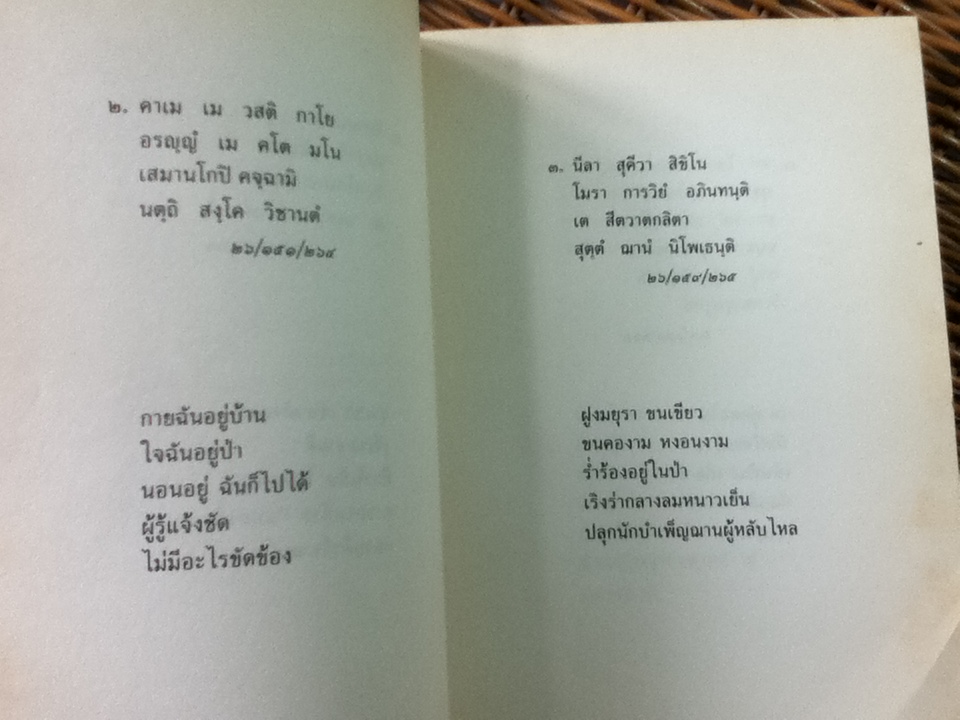 ๒. คาเม เม วสติ กาโย
อรญฺญํ เม คโต มโน
เสมานโกปิ คจฺฉามิ
นตฺถิ สงฺโค วิชานตํ
๒๖/๑๕๑/๒๖๔
กายฉันอยู่บ้าน
ใจฉันอยู่ป่า
นอนอยู่ ฉันก็ไปได้
ผู้รู้แจ้งชัด
ไม่มีอะไรขัดข้อง
๓. นีลา สุคีวา สิขิโน
โมรา การวิยํ อภินทนฺติ
เต สีตวาตกลิตา
สุตฺตํ ฌานํ นิโพเธนฺติ
๒๖/๑๕๙/๒๖๕
ฝูงมยุรา ขนเขียว
ขนคองาม หงอนงาม
ร่ำร้องอยู่ในป่า
เริงร่ากลางลมหนาวเย็น
ปลุกนักบำเพ็ญฌานผู้หลับไหล